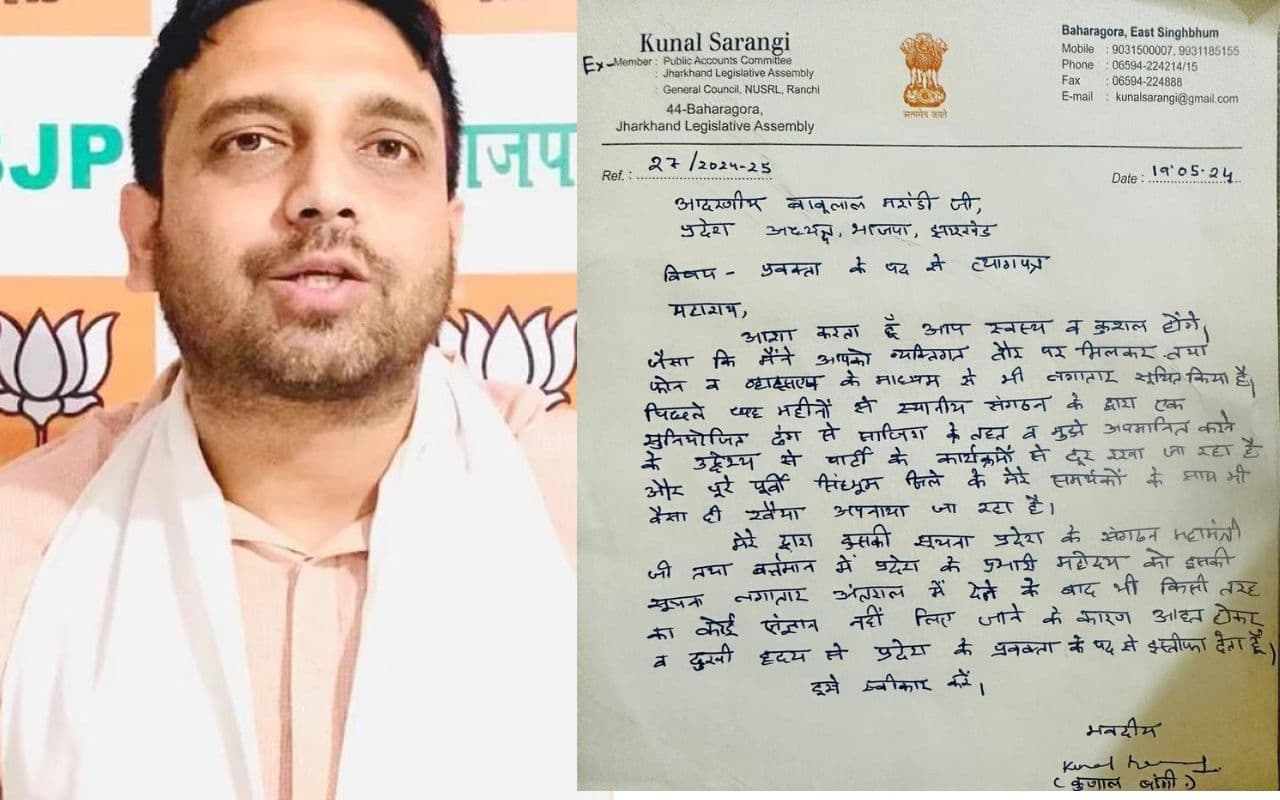 BJP
भाजपा
Kunal Sarangi
Ex-Member : Public Accounts Committee
: Jharkhand Legislative Assembly
: General Council, NUSRL, Ranchi
44-Baharagora,
Jharkhand Legislative Assembly
सत्यमेव जयते
Baharagora, East Singhbhum
Mobile : 9031500007, 9931185155
Phone : 06594-224214/15
Fax : 06594-224888
E-mail : kunalsarangi@gmail.com
Ref. : 27/2024-25
Date : 19.05.24
आदरणीय बाबूलाल मरांडी जी,
प्रदेश अध्यक्ष, भाजपा, झारखंड
विषय - प्रवक्ता के पद से त्यागपत्र
महाशय,
आशा करता हूँ आप स्वस्थ व कुशल होंगे।
जैसा कि मैंने आपको व्यक्तिगत तौर पर मिलकर तथा
फोन व व्हाट्सएप के माध्यम से भी लगातार सूचित किया है।
पिछले छह महीनों से स्थानीय संगठन के द्वारा एक
सुनियोजित ढंग से साजिश के तहत व मुझे अपमानित करने
के उद्देश्य से पार्टी के कार्यक्रमों से दूर रखा जा रहा है
और पूरे पूर्वी सिंहभूम जिले के मेरे समर्थकों के साथ भी
वैसा ही रवैया अपनाया जा रहा है।
मेरे द्वारा इसकी सूचना प्रदेश के संगठन महामंत्री
जी तथा वर्त्तमान में प्रदेश के प्रभारी महोदय को इसकी
सूचना लगातार अंतराल में देने के बाद भी किसी तरह
का कोई संज्ञान नहीं लिए जाने के कारण आहत होकर
व दुखी हृदय से प्रदेश के प्रवक्ता के पद से इस्तीफा देता हूँ।
इसे स्वीकार करें।
भवदीय
Kunal
(कुणाल षाड़ंगी)